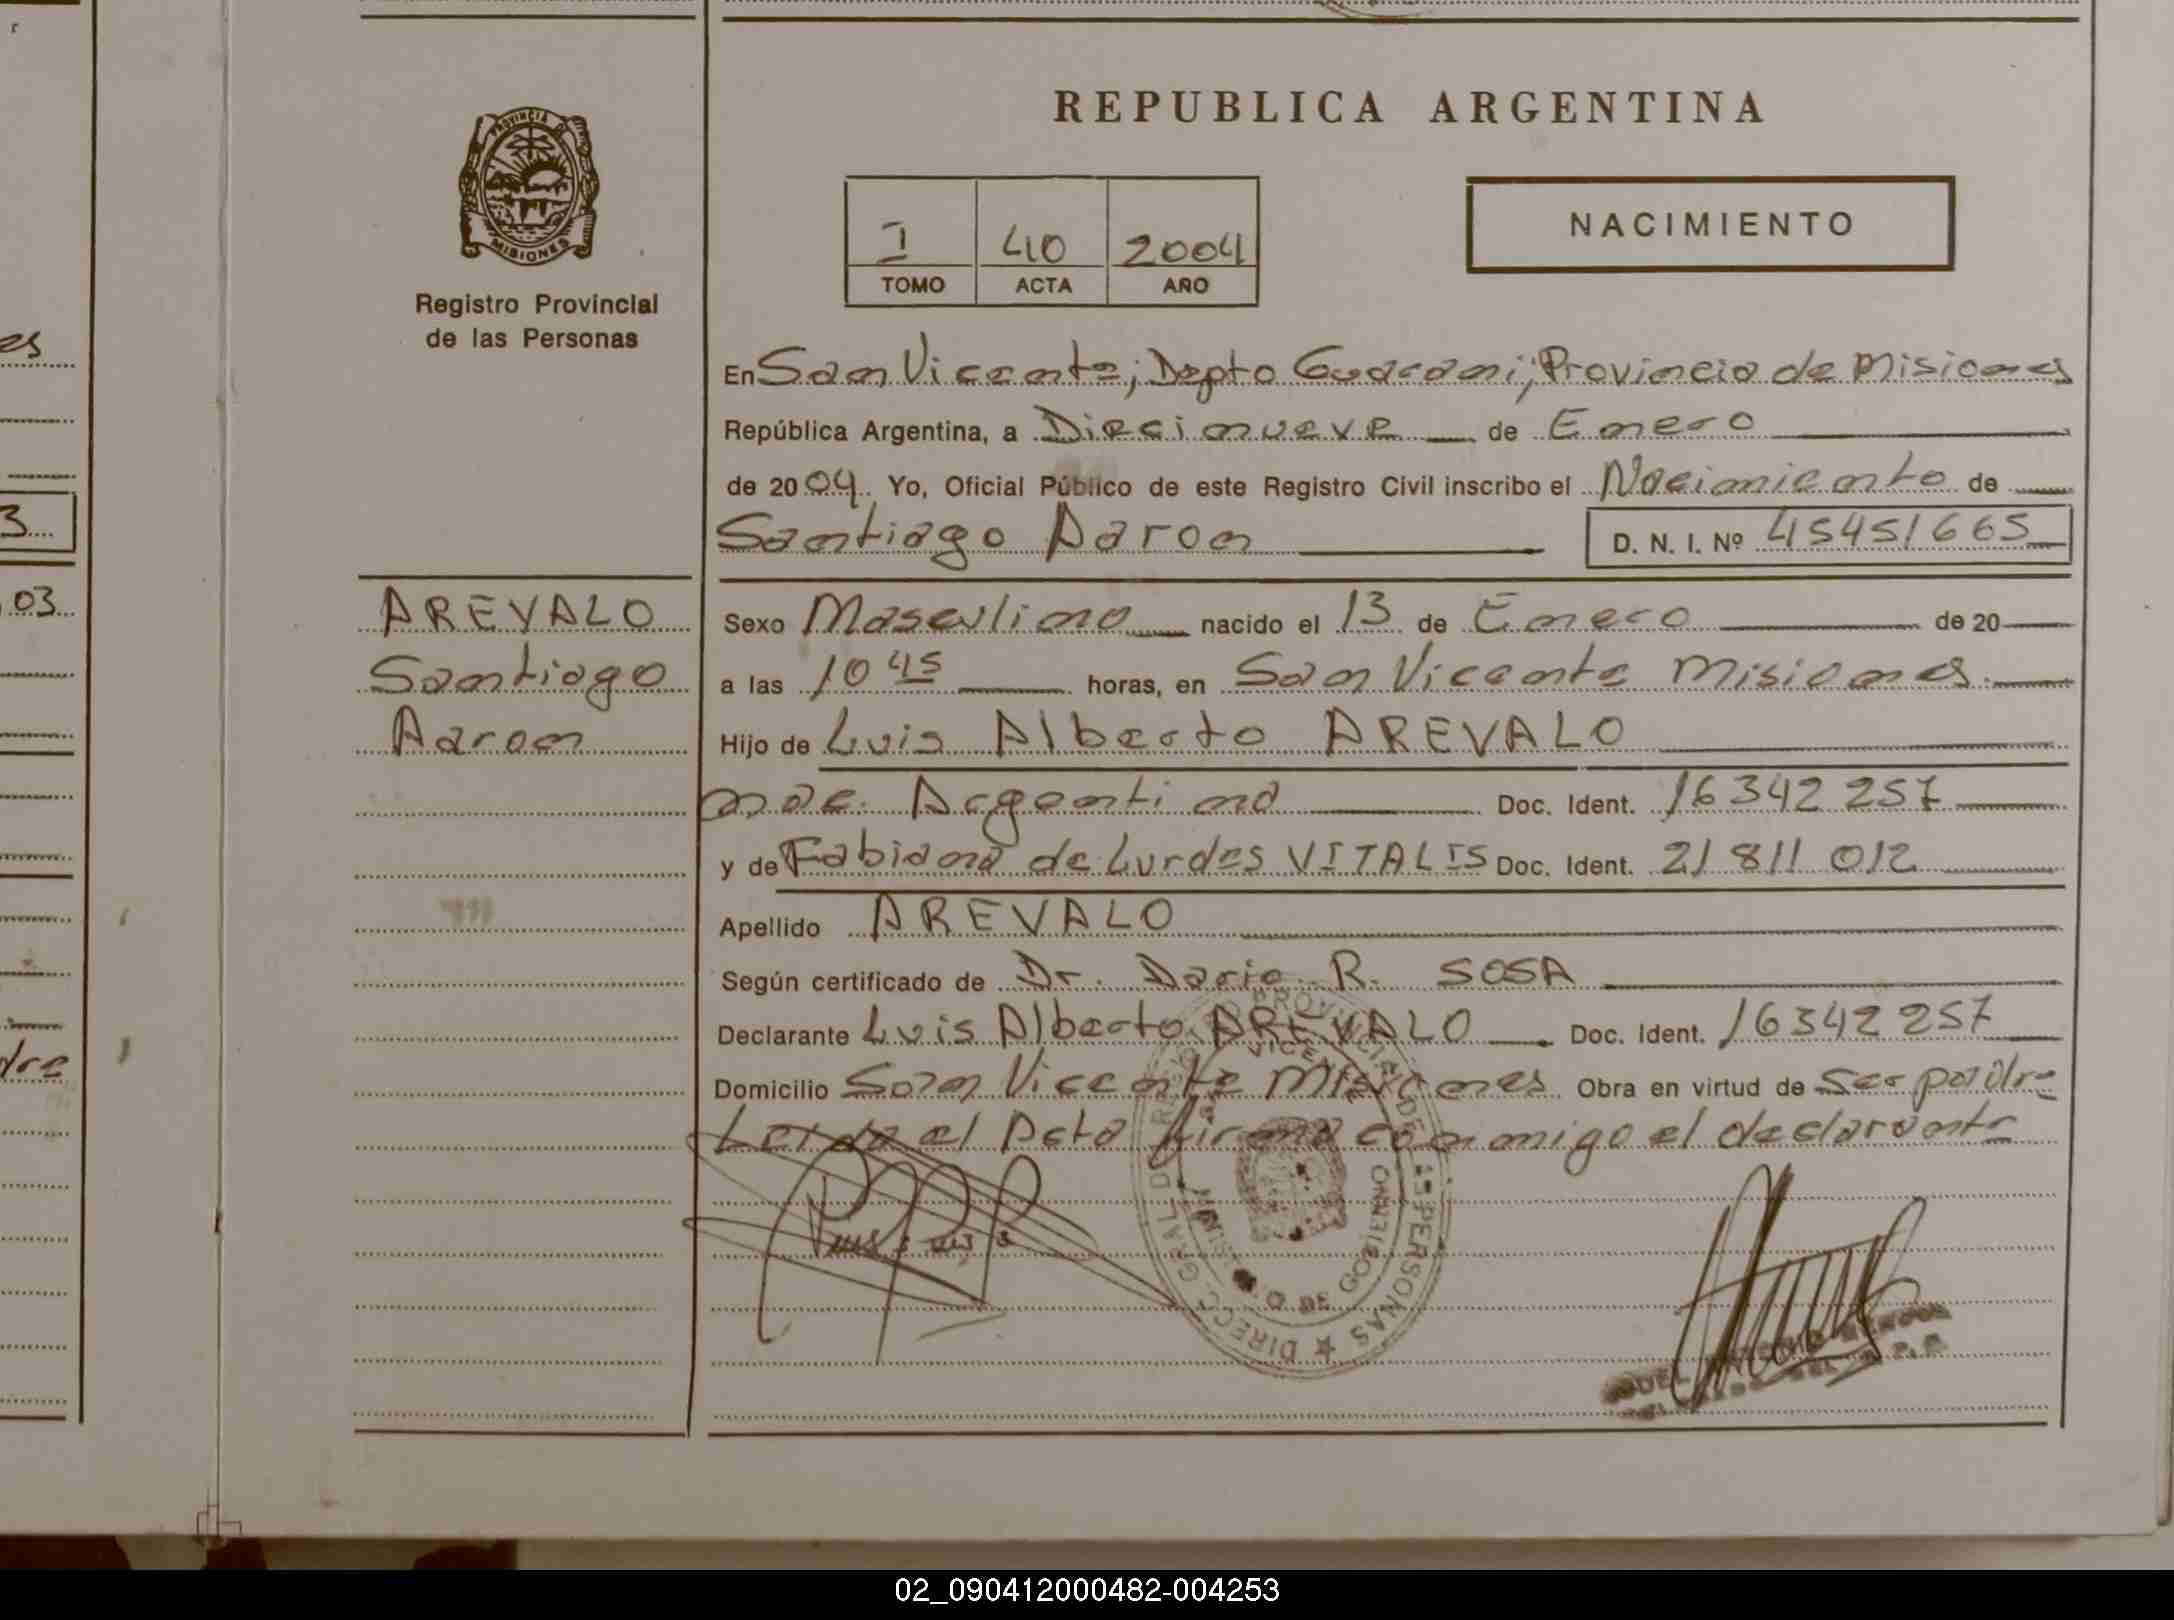 REPUBLICA ARGENTINA
PROVINCIA DE
MISIONES
Registro Provincial
de las Personas
I 40 2004
TOMO ACTA AÑO
NACIMIENTO
En San Vicente; Depto Guarani; Provincia de Misiones
República Argentina, a Diecinueve de Enero
de 2004. Yo, Oficial Público de este Registro Civil inscribo el Nacimiento de
Santiago Aaron D. N. I. Nº 45451665
AREVALO
Santiago
Aaron
Sexo Masculino nacido el 13 de Enero de 20
a las 10 45 horas, en San Vicente Misiones.
Hijo de Luis Alberto AREVALO
nac. Argentina Doc. Ident. 16342257
y de Fabiana de Lurdes VITALIS Doc. Ident. 21811012
Apellido AREVALO
Según certificado de Dr. Dario R. SOSA
Declarante Luis Alberto AREVALO Doc. Ident. 16342257
Domicilio San Vicente Misiones Obra en virtud de ser padre
Leida el Acta firma conmigo el declarante
es
3
03
dre
DIRECC. GRAL. DEL REGISTRO PROVINCIAL DE LAS PERSONAS
VICENTE
DE GOBIERNO
02_090412000482-004253